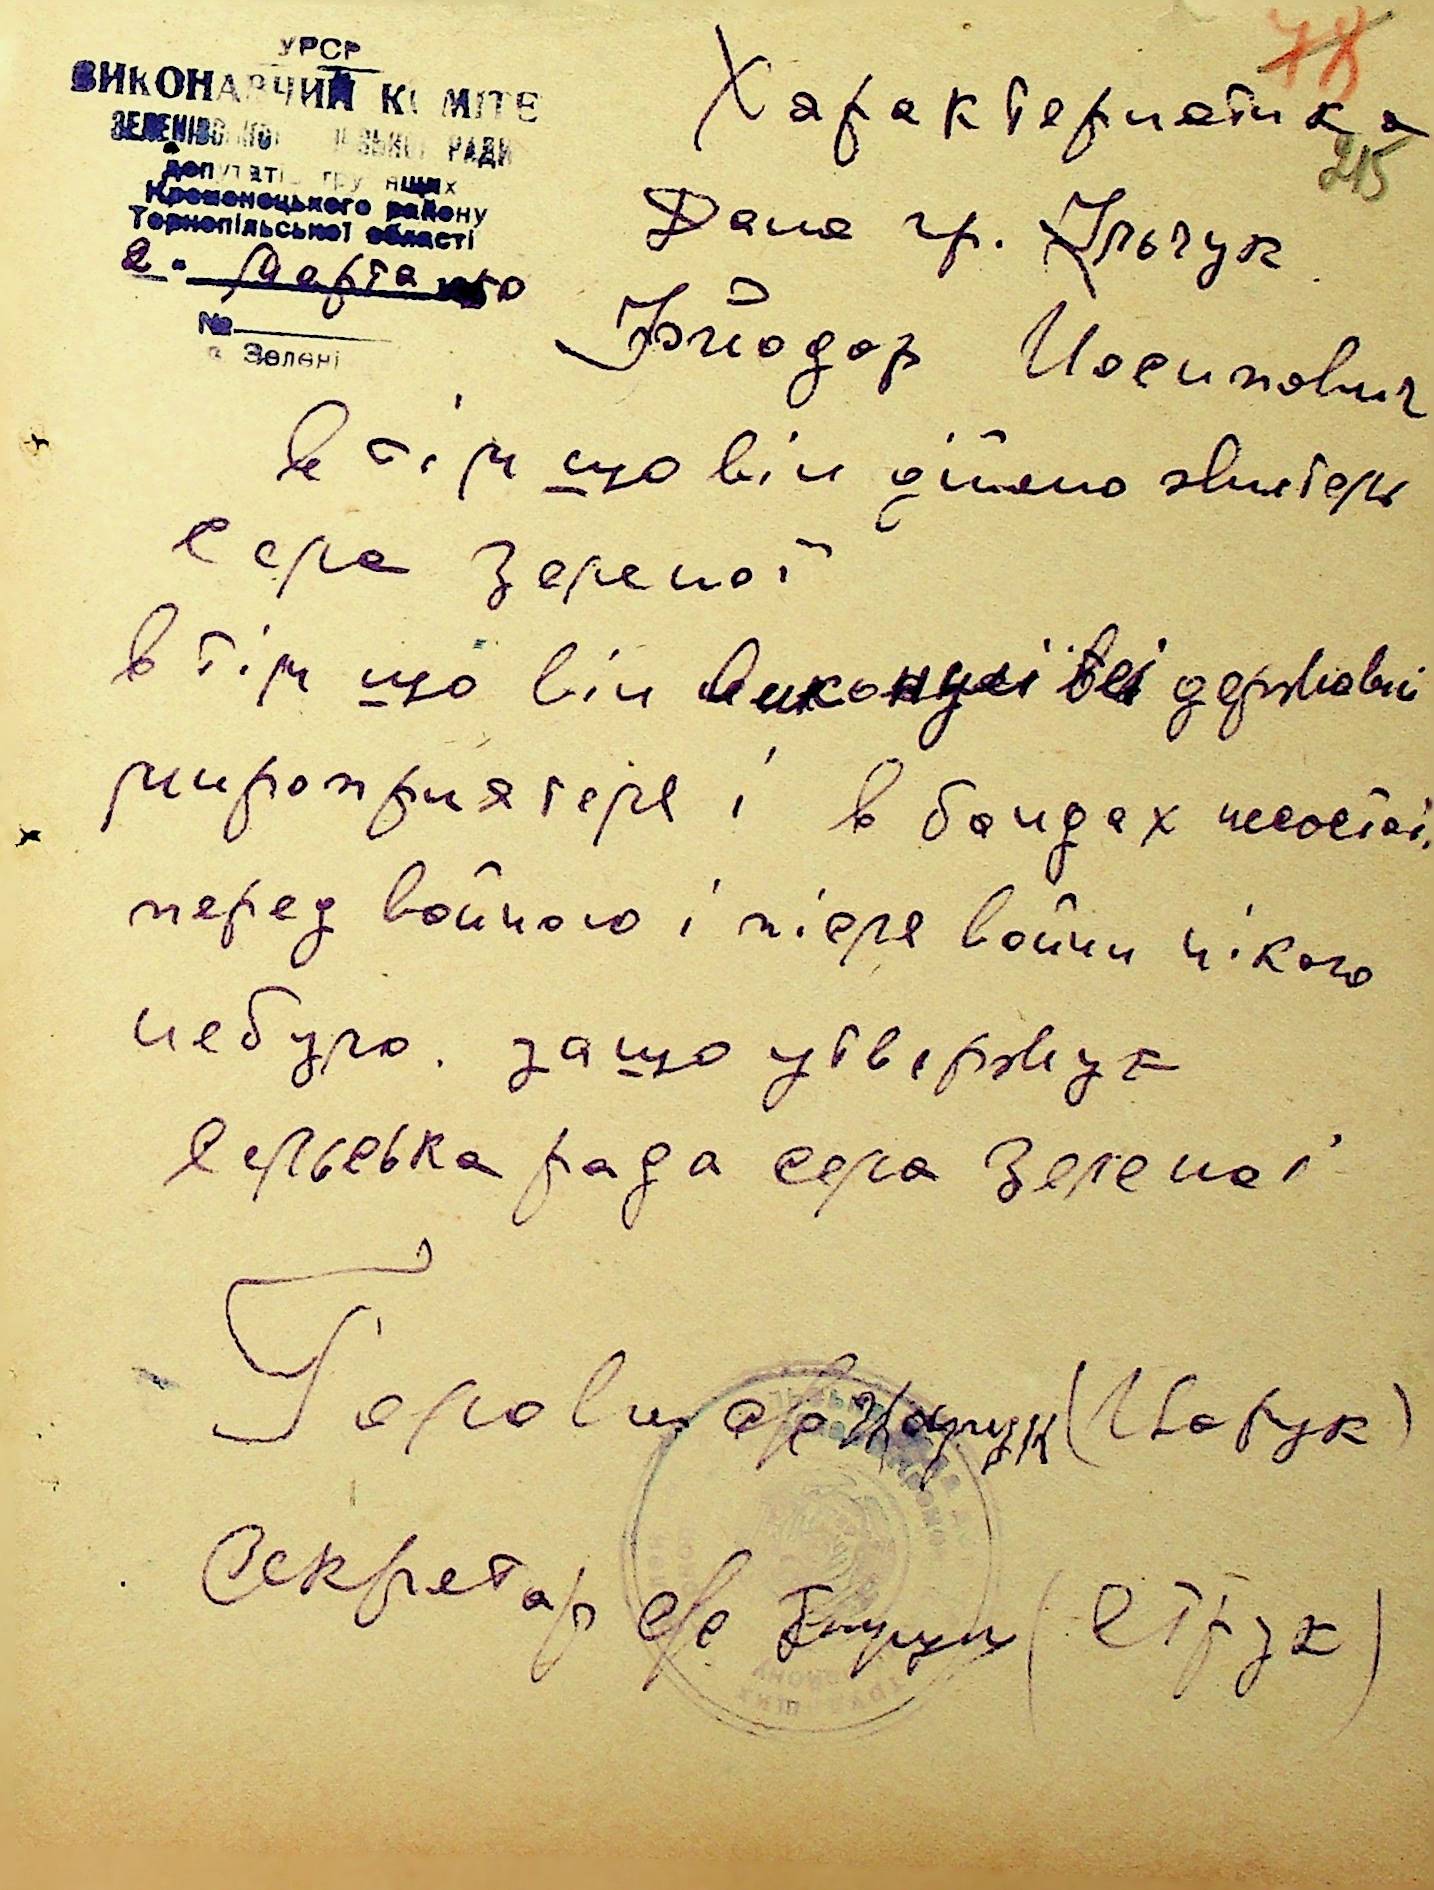 УРСР
ВИКОНАВЧИЙ КОМІТЕ
ЗЕЛЕНІВСЬКОЇ СІЛЬСЬКОЇ РАДИ
депутатів трудящих
Кременецького району
Тернопільської області
2. Марта 1950
№
с. Зелені
78
215
Характеристика
Дана гр. Ільчук
Фйодор Йосипович
в тім що він дійсно житель
села Зеленої
в тім що він виконує всі державні
мироприятеля і в бандах несостоі.
перед войною і після войни нікого
небуло. защо утвіржук
сельська рада села Зеленої
Голови с/р Царук (Царук)
Секретар с/с (Струк)